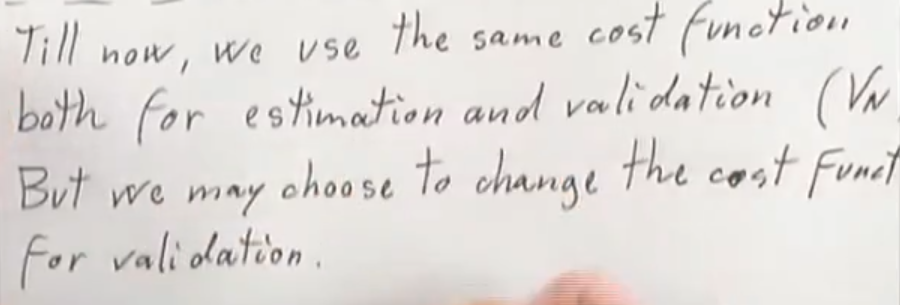 Till now, we use the same cost function
both for estimation and validation (VN
But we may choose to change the cost Funct
For validation.